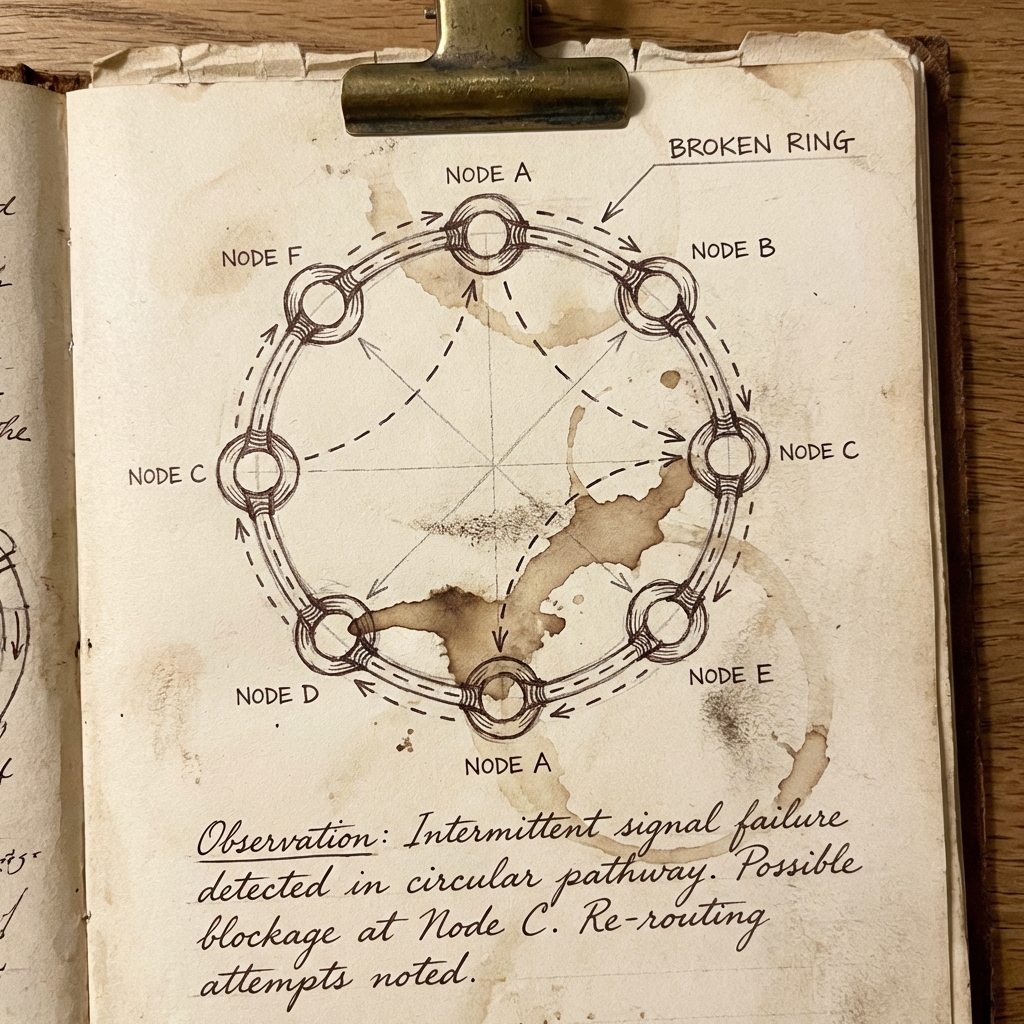 BROKEN RING
NODE A
NODE F
NODE B
NODE C
NODE C
NODE D
NODE E
NODE A
Observation: Intermittent signal failure
detected in circular pathway. Possible
blockage at Node C. Re-routing
attempts noted.
the